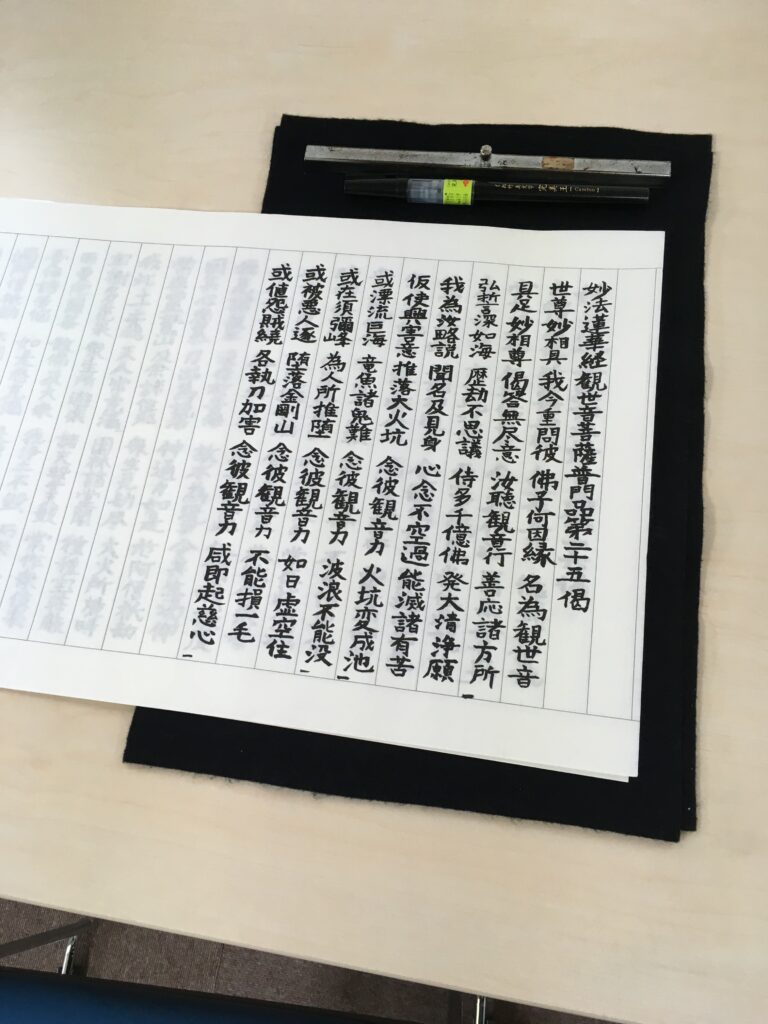 妙法蓮華経観世音菩薩普門品第二十五偈
世尊妙相具 我今重問彼 佛子何因縁 名為観世音
具足妙相尊 偈答無尽意 汝聴観音行 善応諸方所
弘誓深如海 歴劫不思議 侍多千億佛 発大清浄願
我為汝略説 聞名及見身 心念不空過 能滅諸有苦
仮使興害意 推落大火坑 念彼観音力 火坑変成池
或漂流巨海 竜魚諸鬼難 念彼観音力 波浪不能没
或在須彌峰 為人所推堕 念彼観音力 如日虚空住
或被悪人逐 堕落金剛山 念彼観音力 不能損一毛
或値怨賊繞 各執刀加害 念彼観音力 咸即起慈心
完美王 Cambio